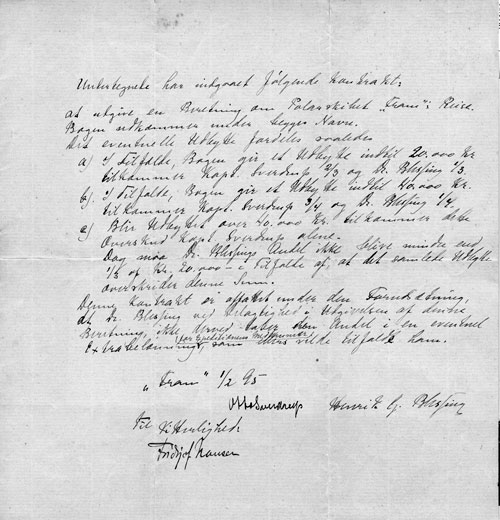 Undertegnede har indgaaet følgende kontrakt:
at utgive en Beretning om Polarskibet "Fram"s Reise.
Bogen udkommer under begges Navne.
Det eventuelle Udbytte fordeles saaledes
a) I Tilfælde, Bogen gir et Udbytte indtil 20.000 Kr
tilkommer Kapt. Sverdrup 2/3 og Dr. Blessing 1/3.
b) I Tilfælde, Bogen gir et Udbytte indtil 40.000 Kr.
tilkommer Kapt. Sverdrup 3/4 og Dr. Blessing 1/4.
c) Blir Udbyttet over 40.000 Kr. tilkommer dette
Overskud Kapt. Sverdrup alene.
Dog maa Dr. Blessings Andel ikke blive mindre end
1/3 af Kr. 20.000 – i Tilfælde af, at det samlede Udbytte
overskrider denne Sum.
Denne Kontrakt er affattet under den Forudsætning,
at Dr. Blessing ved Delagtighed i Udgivelsen af denne
Beretning, ikke derved taber den Andel i en eventuel
Extrabelønning (for Expeditionens Medlemmer), som ellers vilde tilfalde ham.
"Fram" 1/2 95
Otto Sverdrup
Henrik G. Blessing
Til Vitterlighed:
Fridtjof Nansen